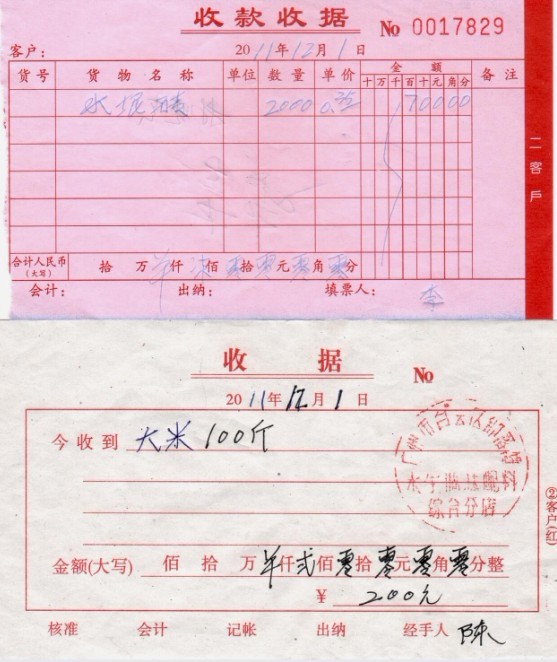 收款收据 No 0017829
客户: 2011年12月1日
货号 货物名称 单位 数量 单价 金额 备注
十万千百十元角分
水 2000 0.35 70000
二客户
合计人民币(大写) 拾 万 仟 柒佰零拾零元零角零分
会计: 出纳: 填票人: 李
收据
No
2011年12月1日
今收到 大米 100斤
②客户(红)
金额(大写) 佰 拾 万 仟贰佰零拾零元零角零分整
¥ 200元
核准 会计 记帐 出纳 经手人 陈